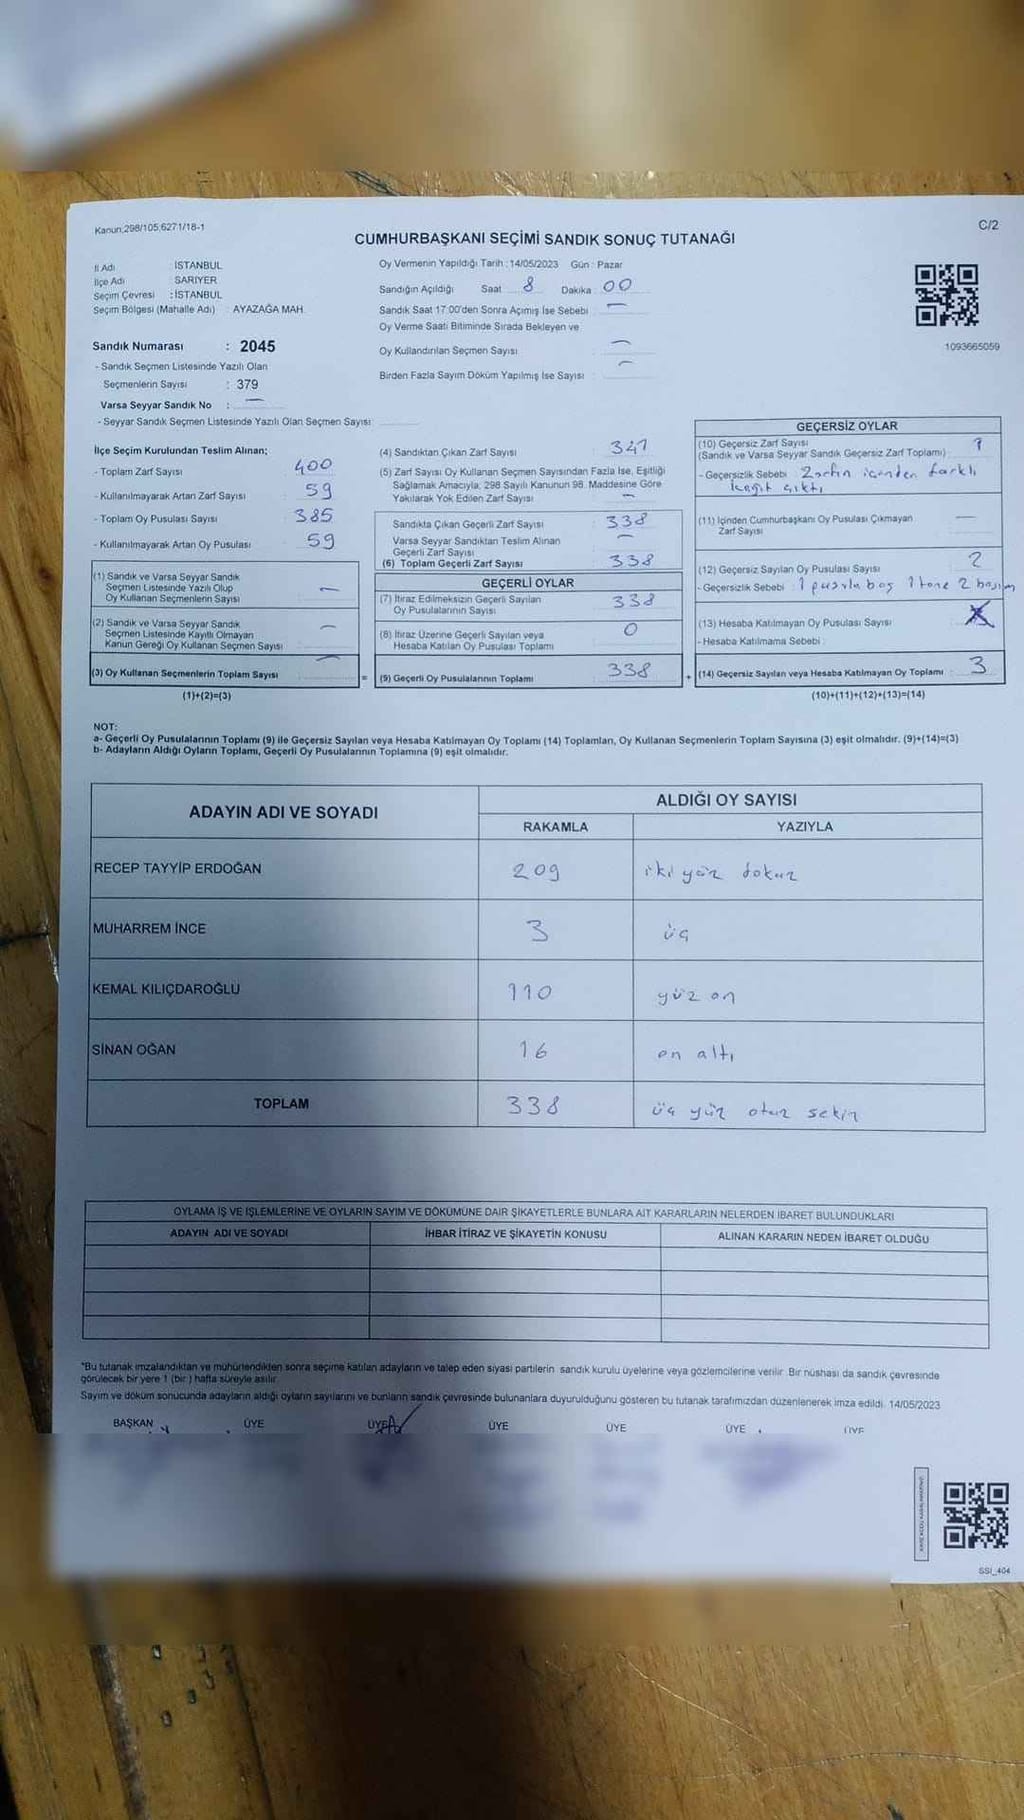 Kanun:298/105,6271/18-1
C/2
CUMHURBAŞKANI SEÇİMİ SANDIK SONUÇ TUTANAĞI
İl Adı : İSTANBUL
İlçe Adı : SARIYER
Seçim Çevresi : İSTANBUL
Seçim Bölgesi (Mahalle Adı) : AYAZAĞA MAH.
Oy Vermenin Yapıldığı Tarih : 14/05/2023 Gün : Pazar
Sandığın Açıldığı Saat 8 Dakika : 00
Sandık Saat 17:00'den Sonra Açımış İse Sebebi : —
Oy Verme Saati Bitiminde Sırada Bekleyen ve
Oy Kullandırılan Seçmen Sayısı : —
Birden Fazla Sayım Döküm Yapılmış İse Sayısı : —
1093665059
Sandık Numarası : 2045
- Sandık Seçmen Listesinde Yazılı Olan
Seçmenlerin Sayısı : 379
Varsa Seyyar Sandık No : —
- Seyyar Sandık Seçmen Listesinde Yazılı Olan Seçmen Sayısı:
İlçe Seçim Kurulundan Teslim Alınan;
- Toplam Zarf Sayısı : 400
- Kullanılmayarak Artan Zarf Sayısı : 59
- Toplam Oy Pusulası Sayısı : 385
- Kullanılmayarak Artan Oy Pusulası : 59
(1) Sandık ve Varsa Seyyar Sandık
Seçmen Listesinde Yazılı Olup
Oy Kullanan Seçmenlerin Sayısı : —
(2) Sandık ve Varsa Seyyar Sandık
Seçmen Listesinde Kayıtlı Olmayan
Kanun Gereği Oy Kullanan Seçmen Sayısı : —
(3) Oy Kullanan Seçmenlerin Toplam Sayısı : —
(1)+(2)=(3)
(4) Sandıktan Çıkan Zarf Sayısı : 341
(5) Zarf Sayısı Oy Kullanan Seçmen Sayısından Fazla İse, Eşitliği
Sağlamak Amacıyla, 298 Sayılı Kanunun 98. Maddesine Göre
Yakılarak Yok Edilen Zarf Sayısı : —
Sandıkta Çıkan Geçerli Zarf Sayısı : 338
Varsa Seyyar Sandıktan Teslim Alınan
Geçerli Zarf Sayısı : —
(6) Toplam Geçerli Zarf Sayısı : 338
GEÇERLİ OYLAR
(7) İtiraz Edilmeksizin Geçerli Sayılan
Oy Pusulalarının Sayısı : 338
(8) İtiraz Üzerine Geçerli Sayılan veya
Hesaba Katılan Oy Pusulası Toplamı : 0
= (9) Geçerli Oy Pusulalarının Toplamı : 338
GEÇERSİZ OYLAR
(10) Geçersiz Zarf Sayısı : 1
(Sandık ve Varsa Seyyar Sandık Geçersiz Zarf Toplamı)
- Geçersizlik Sebebi : Zarfın içinden farklı
kağıt çıktı
(11) İçinden Cumhurbaşkanı Oy Pusulası Çıkmayan
Zarf Sayısı : —
(12) Geçersiz Sayılan Oy Pusulası Sayısı : 2
- Geçersizlik Sebebi : 1 pusula boş 1 tane 2
(13) Hesaba Katılmayan Oy Pusulası Sayısı
- Hesaba Katılmama Sebebi :
+ (14) Geçersiz Sayılan veya Hesaba Katılmayan Oy Toplamı : 3
(10)+(11)+(12)+(13)=(14)
NOT:
a- Geçerli Oy Pusulalarının Toplamı (9) ile Geçersiz Sayılan veya Hesaba Katılmayan Oy Toplamı (14) Toplamları, Oy Kullanan Seçmenlerin Toplam Sayısına (3) eşit olmalıdır. (9)+(14)=(3)
b- Adayların Aldığı Oyların Toplamı, Geçerli Oy Pusulalarının Toplamına (9) eşit olmalıdır.
ADAYIN ADI VE SOYADI
ALDIĞI OY SAYISI
RAKAMLA YAZIYLA
RECEP TAYYİP ERDOĞAN 209 iki yüz dokuz
MUHARREM İNCE 3 üç
KEMAL KILIÇDAROĞLU 110 yüz on
SİNAN OĞAN 16 on altı
TOPLAM 338 üç yüz otuz sekiz
OYLAMA İŞ VE İŞLEMLERİNE VE OYLARIN SAYIM VE DÖKÜMÜNE DAİR ŞİKAYETLERLE BUNLARA AİT KARARLARIN NELERDEN İBARET BULUNDUKLARI
ADAYIN ADI VE SOYADI İHBAR İTİRAZ VE ŞİKAYETİN KONUSU ALINAN KARARIN NEDEN İBARET OLDUĞU
*Bu tutanak imzalandıktan ve mühürlendikten sonra seçime katılan adayların ve talep eden siyasi partilerin sandık kurulu üyelerine veya gözlemcilerine verilir. Bir nüshası da sandık çevresinde
görülecek bir yere 1 (bir) hafta süreyle asılır.
Sayım ve döküm sonucunda adayların aldığı oyların sayılarını ve bunların sandık çevresinde bulunanlara duyurulduğunu gösteren bu tutanak tarafımızdan düzenlenerek imza edildi. 14/05/2023
BAŞKAN ÜYE ÜYE ÜYE ÜYE ÜYE ÜYE
SSI_404